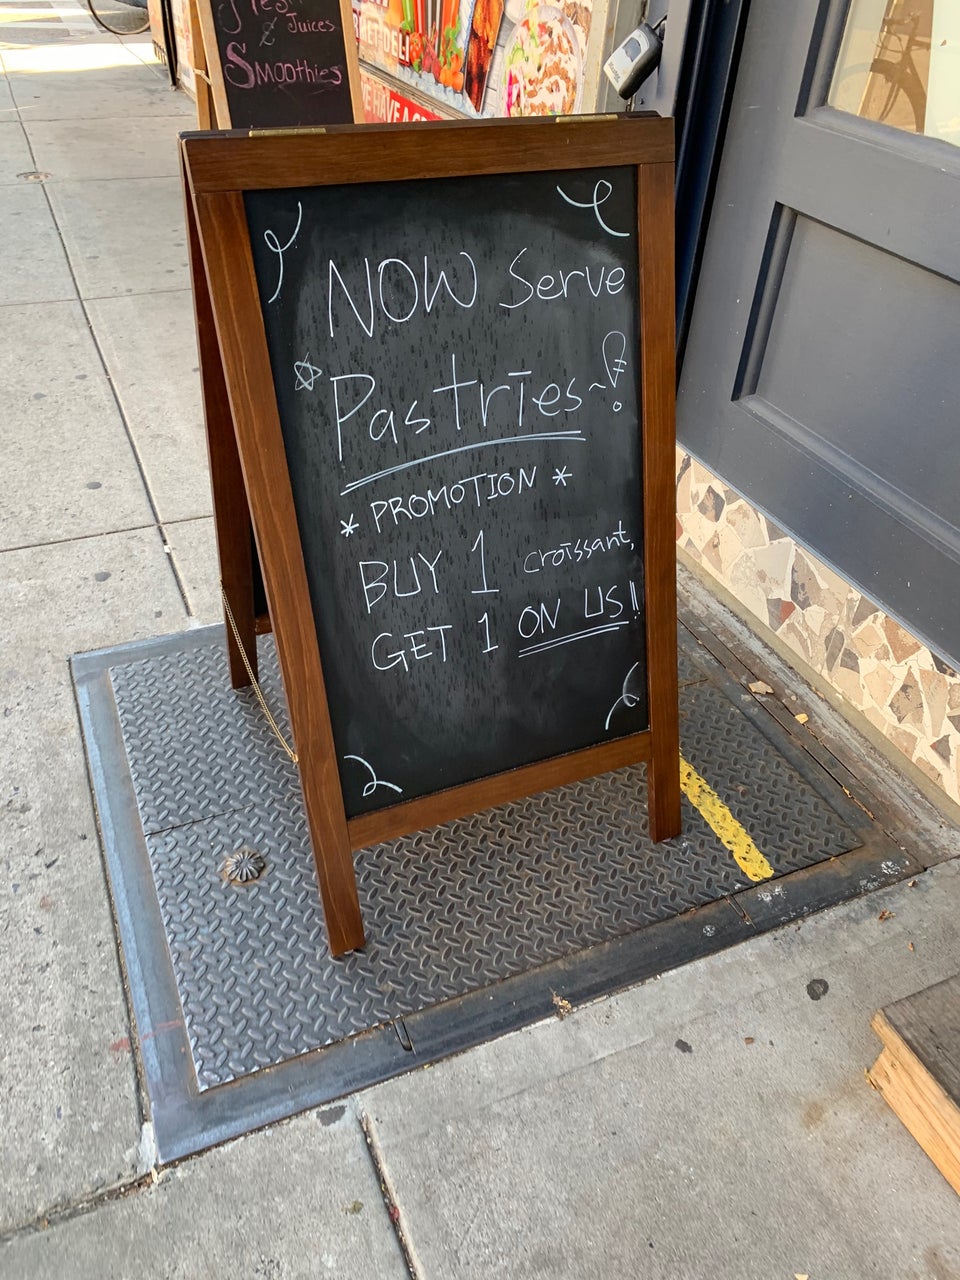 Fresh
& Juices
Smoothies
NOW Serve
Pastries~!
* PROMOTION *
BUY 1 croissant,
GET 1 ON US!!